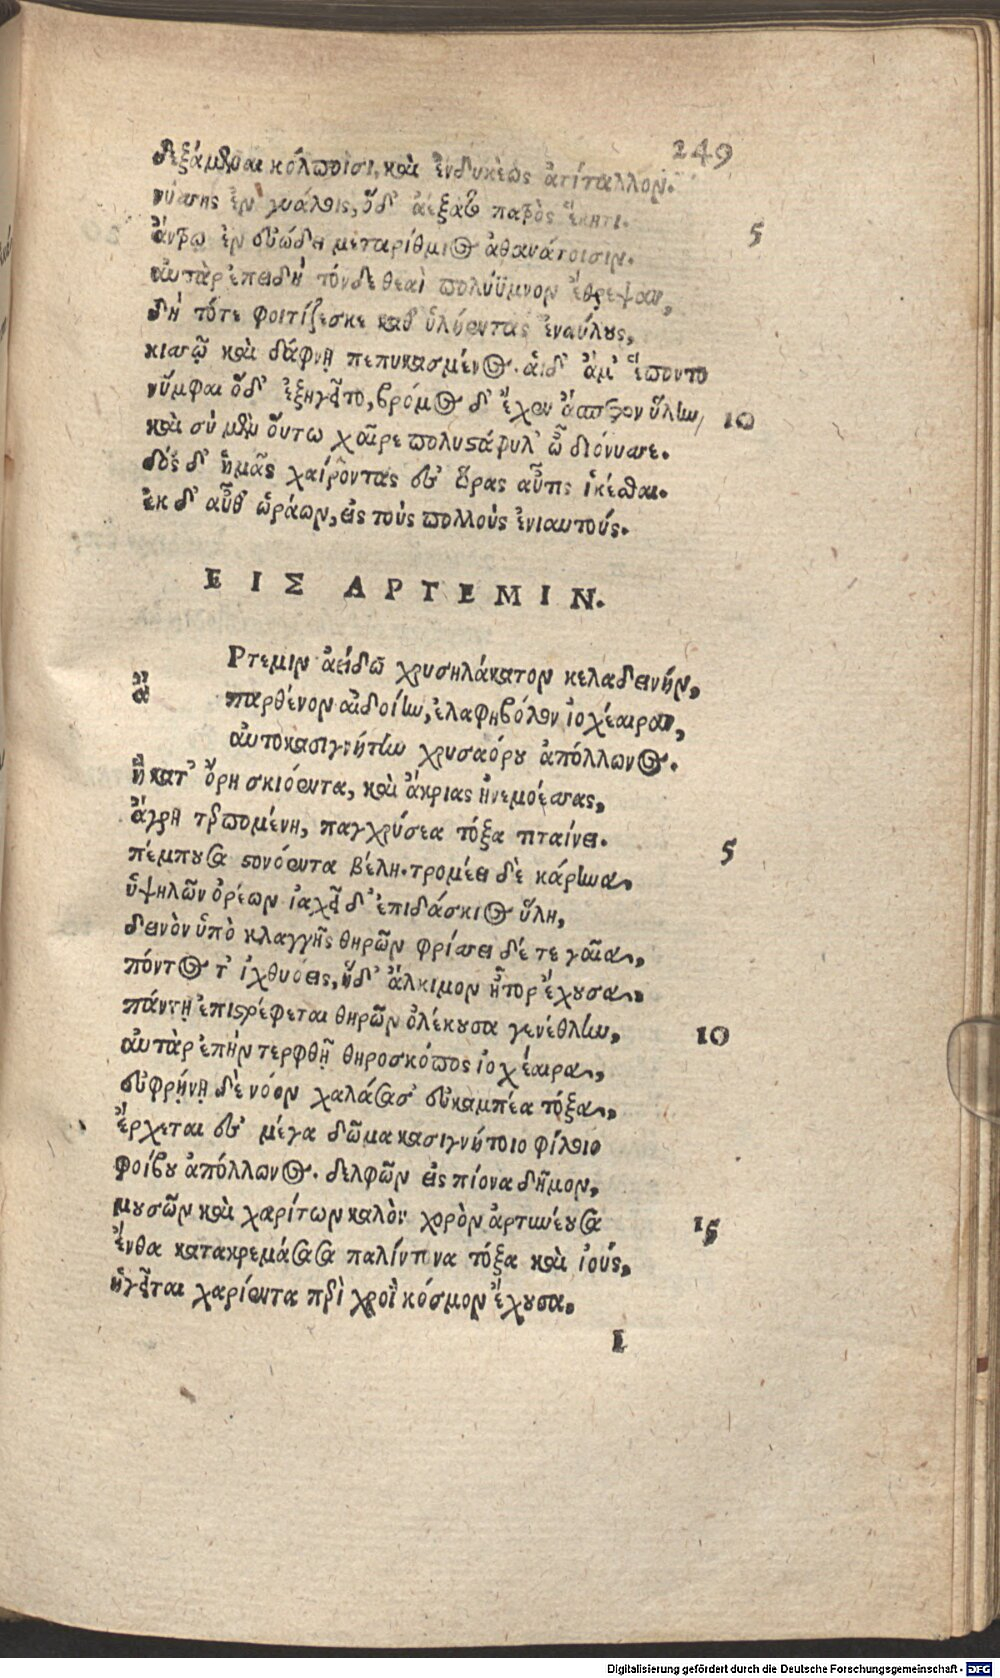 249
δεξάμεναι κόλποισι, καὶ ἐνδυκέως ἀτίταλλον.
νύσσης ἐν γυάλοις, ὅδ᾽ ἀέξατο πατρὸς ἕκητι. 5
ἄντρῳ ἐν εὐώδει μεταρίθμιος ἀθανάτοισιν.
αὐτὰρ ἐπειδὴ τόνδε θεαὶ πολύϋμνον ἔθρεψαν,
δὴ τότε φοιτίζεσκε καθ᾽ ὑλήεντας ἐναύλους,
κισσῷ καὶ δάφνῃ πεπυκασμένος. αἱ δ᾽ ἅμ᾽ ἕποντο
νύμφαι ὅδ᾽ ἐξηγεῖτο, βρόμος δ᾽ ἔχεν ἄασπτον ὕλην, 10
καὶ σύ μὲν οὕτω χαῖρε πολυστάφυλ᾽ ὦ διόνυσε.
δός δ᾽ ἡμᾶς χαίροντας ἐς ὥρας αὖτις ἱκέσθαι.
ἐκ δ᾽ αὖθ᾽ ὡράων, εἰς τοὺς πολλοὺς ἐνιαυτούς.
ΕΙΣ ΑΡΤΕΜΙΝ.
ἂ Ρτεμιν ἀείδω χρυσηλάκατον κελαδεινήν,
παρθένον αἰδοίην, ἐλαφηβόλον ἰοχέαιραν,
αὐτοκασιγνήτην χρυσαόρου ἀπόλλωνος.
ἣ κατ᾽ ὄρη σκιόεντα, καὶ ἄκριας ἠνεμοέσσας,
ἄγρῃ τερπομένη, παγχρύσεα τόξα τιταίνει. 5
πέμπουσα στονόεντα βέλη. τρομέει δὲ κάρηνα,
ὑψηλῶν ὀρέων ἰαχεῖ δ᾽ ἐπιδάσκιος ὕλη,
δεινὸν ὑπὸ κλαγγῆς θηρῶν φρίσσει δέ τε γαῖα,
πόντος τ᾽ ἰχθυόεις, ἥδ᾽ ἄλκιμον ἦτορ ἔχουσα,
πάντῃ ἐπιστρέφεται θηρῶν ὀλέκουσα γενέθλην, 10
αὐτὰρ ἐπὴν τερφθῇ θηροσκόπος ἰοχέαιρα,
εὐφρήνῃ δὲ νόον χαλάσασ᾽ εὐκαμπέα τόξα,
ἔρχεται ἐς μέγα δῶμα κασιγνήτοιο φίλοιο
φοίβου ἀπόλλωνος. δελφῶν εἰς πίονα δῆμον,
μουσῶν καὶ χαρίτων καλὸν χορὸν ἀρτυνέουσα 15
ἔνθα κατακρεμάσασα παλίντονα τόξα καὶ ἰούς,
ἡγεῖται χαρίεντα περὶ χροῒ κόσμον ἔχουσα,
I
Digitalisierung gefördert durch die Deutsche Forschungsgemeinschaft - DFG